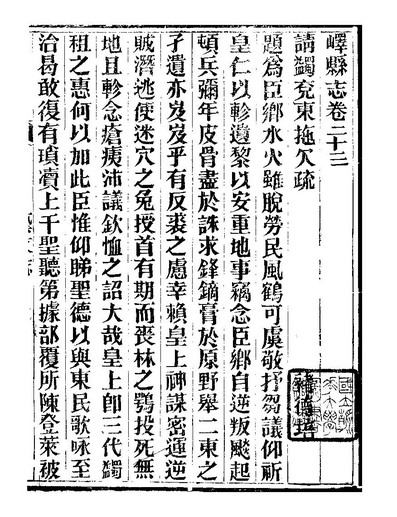 嶧縣志卷二十三
請蠲兖東拖欠疏
題爲臣鄉水火雖脫勞民風鶴可虞敬抒芻議仰祈
皇仁以軫遺黎以安重地事竊念臣鄉自逆叛颷起
頓兵彌年皮骨盡於誅求鋒鏑膏於原野舉二東之
孑遺亦岌岌乎有反裘之慮幸賴皇上神謀密運逆
賊潛逃使迷穴之兔授首有期而喪林之鴞投死無
地且軫念瘡痍沛議欽恤之詔大哉皇上卽三代蠲
租之惠何以加此臣惟仰睇聖德以與東民歌咏至
治曷敢復有瑣瀆上干聖聽第據部覆所陳登萊被